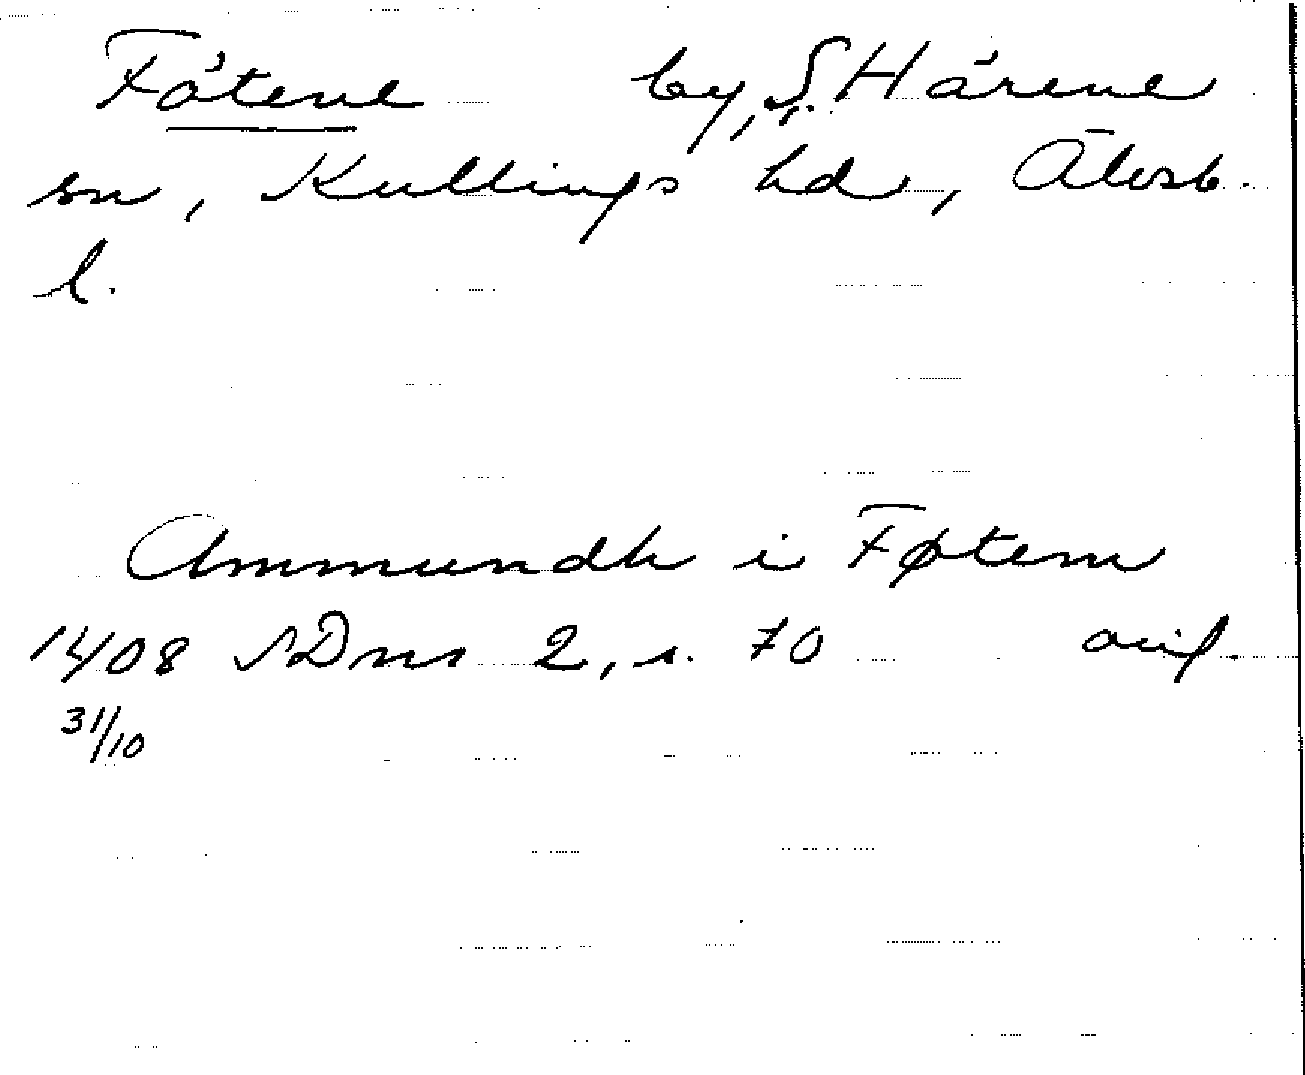 Fåtene by, S. Härene
sn, Kullings hd, Älvsb.
l.
Ammundh i Føtene
1408 SDns 2, s. 70 avif.
31/10